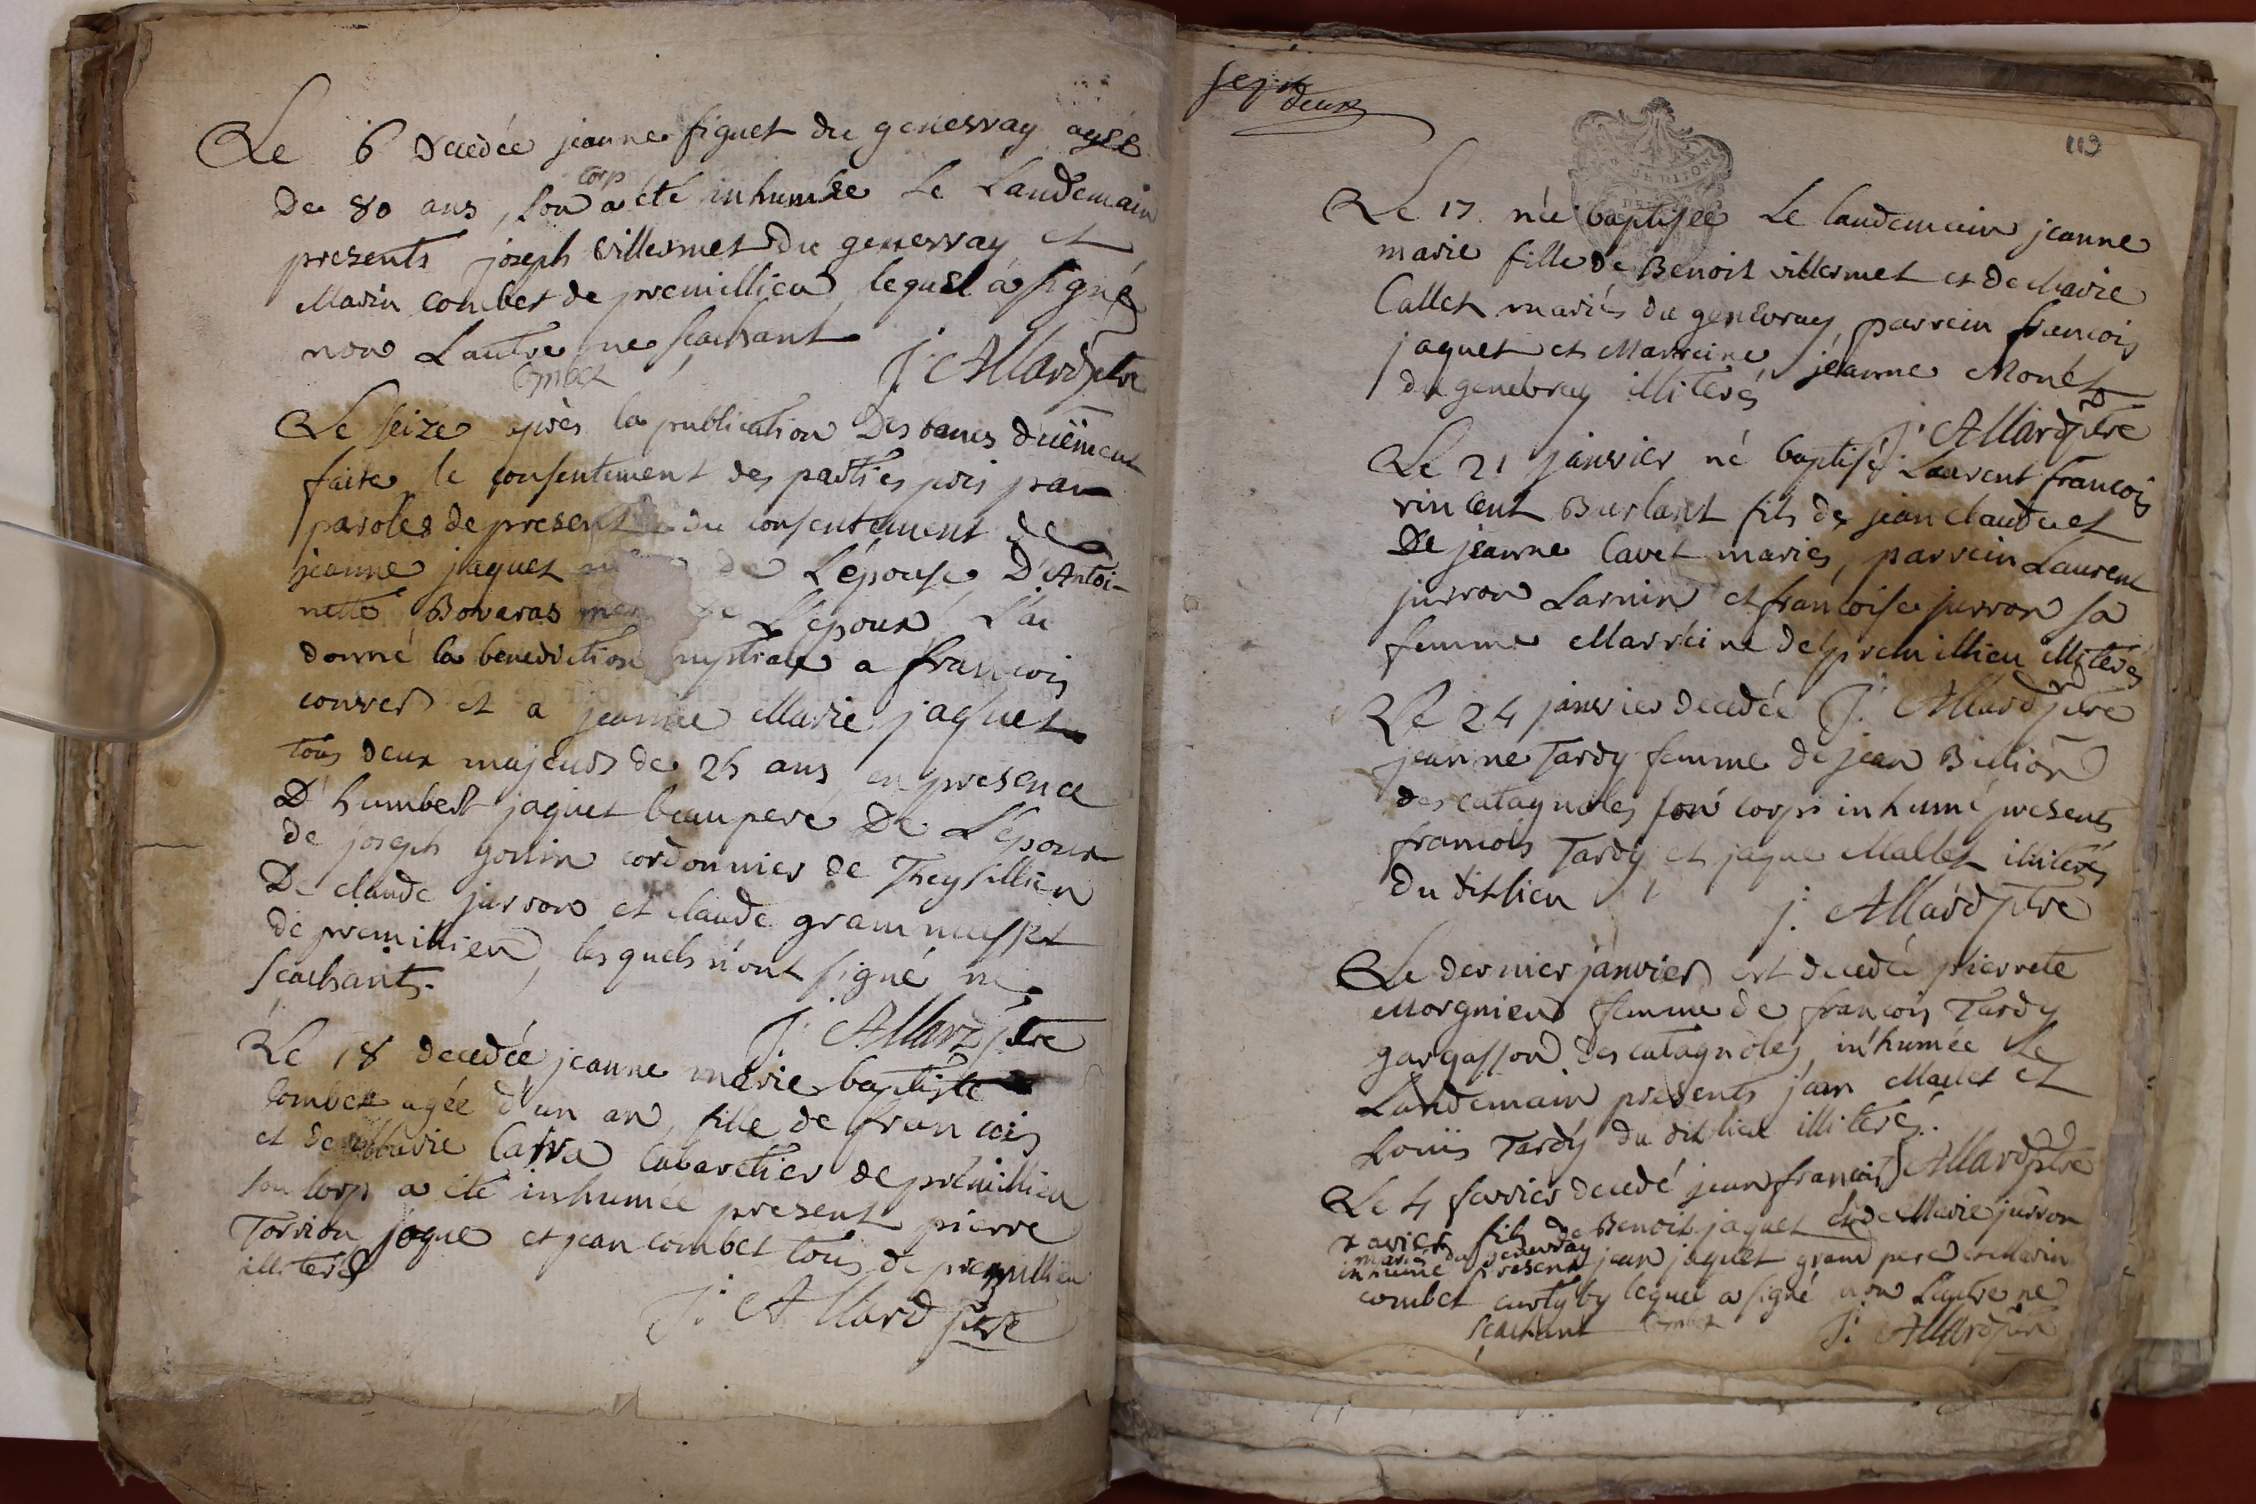 Le 6 decedée jeanne figuet du genevray agée
de 80 ans, son corp a été inhumée le Landemain
presents joseph villermet du genevray et
Marin combet de premillieu lequel a signé
non Lautre ne scachant
combet J: Allard ptre
Le seize après la publication des bancs duëment
faite le consentement des parties pris par
paroles de present du consentement de
jeanne jaquet de L'épouse D'Antoi-
nette Bovaras mere de L'epoux J'ai
donné la benediction nuptiale a francois
couver et a jeanne Marie jaquet
tous deux majeurs de 25 ans en presence
D'humbert jaquet beaupere De L'époux
de joseph gonin cordonnier de Theysillieu
De claude juvron et claude grammusset
de premillieu, lesquels n'ont signé ne
scachants.
J: Allard ptre
Le 18 decedée jeanne marie baptiste
Combet agée d'un an, fille de francois
et de Marie Carra Cabaretier de premillieu
son corp a été inhumée present pierre
Torrion jaque et jean combet tous de premillieu
illiterés
J: Allard ptre
sept
deux
113
Le 17 née baptisée Le landemain jeanne
marie fille de Benoit villermet et de Marie
Callet mariés du genevray, parrein francois
jaquet et Marreine jeanne Monét
du genevray illiterés
J: Allard ptre
Le 21 janvier né baptisé Laurent francois
vincent Burlaret fils de jean claude et
De jeanne Cavet mariés, parrein Laurent
jurron Larnin et francoise jurron sa
femme Marreine de premillieu illiterés
J: Allard ptre
Le 24 janvier decedée
jeanne Tardy femme de jean Bulion
des catagnoles son corps inhumé presents
francois Tardy et jaque Mallet illiterés
du dit lieu
J: Allard ptre
Le dernier janvier est decedée pierrete
Morgnieux femme de francois Tardy
gargasson des catagnoles, inhumée Le
Landemain presents jean Mallet et
Louis Tardy du dit lieu illiterés.
J Allard ptre
Le 4 fevrier decedé jean francois
xavier fils de Benoit jaquet et de Marie jurron
mariés du genevray
inhumé present jean jaquet grand pere et Marin
combet curtyby lequel a signé non L'autre ne
scachant combet J: Allard ptre